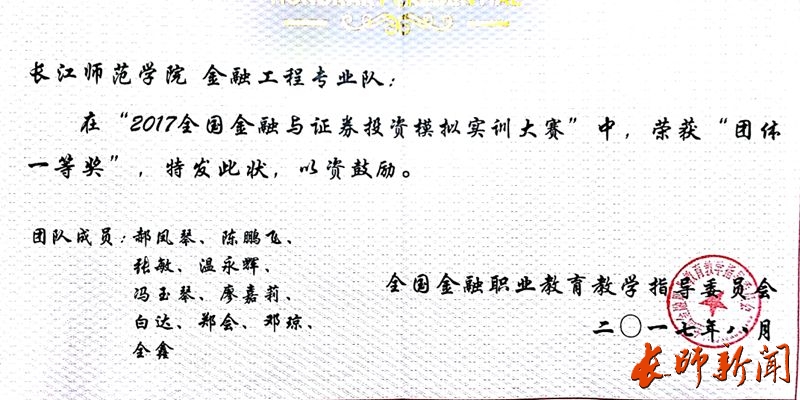 长江师范学院 金融工程专业队：
在“2017全国金融与证券投资模拟实训大赛”中，荣获“团体
一等奖”，特发此状，以资鼓励。
团队成员：郝凤琴、陈鹏飞、
张敏、温永辉、
冯玉琴、廖嘉莉、
白达、郑会、邓琼、
全鑫
全国金融职业教育教学指导委员会
二〇一七年八月
长师新闻